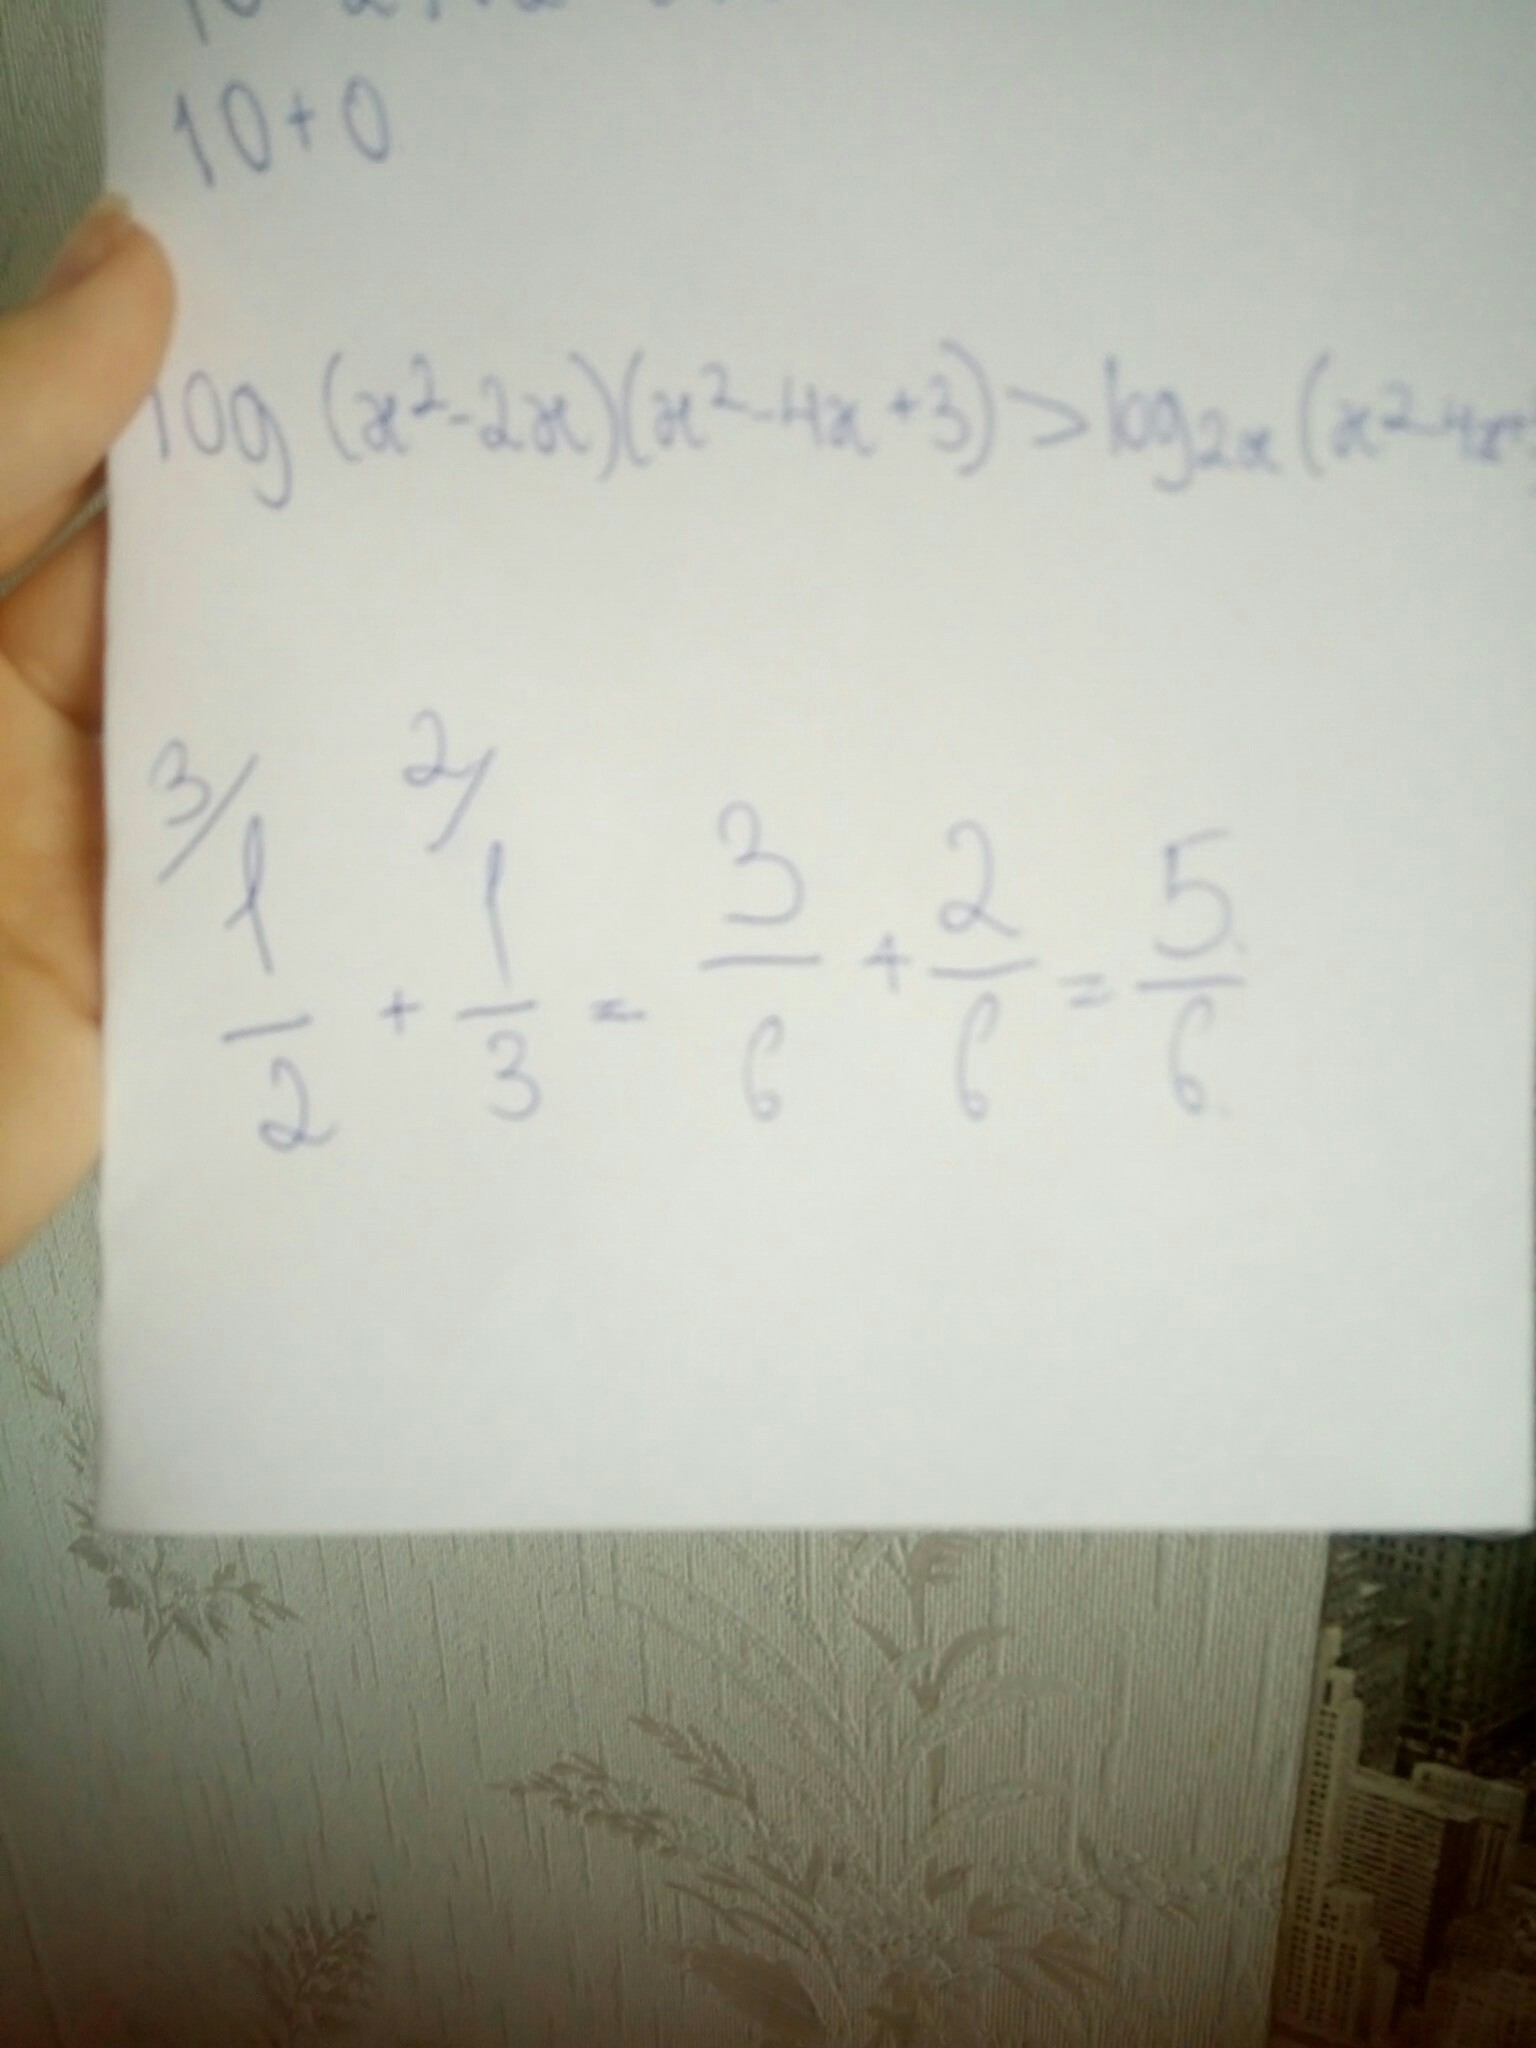 10+0
log (x²-2x)(x²-4x+3)>log₂ₓ(x²-4x
3/ 2/
1/2 + 1/3 = 3/6 + 2/6 = 5/6